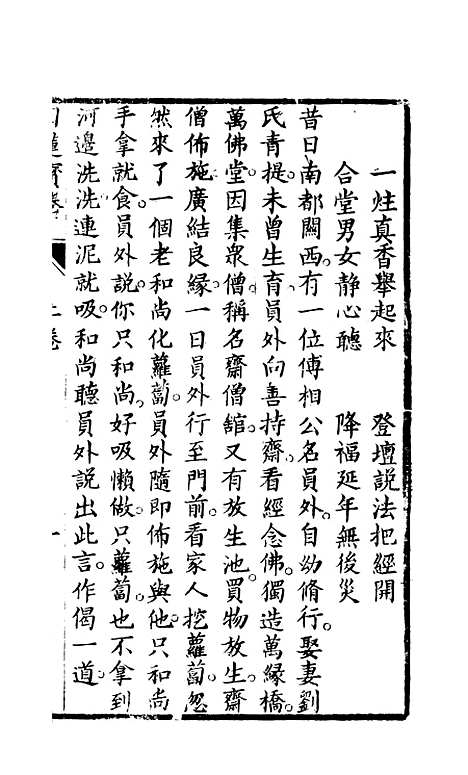 一炷真香舉起來　登壇說法把經開
合堂男女静心聽　降福延年無後災
昔日南都關西。有一位傅相公名員外。自幼脩行。娶妻劉
氏青提。未曾生育員外向善持齋。看經念佛。獨造萬緣橋。
萬佛堂。因集衆僧稱名齋僧舘。又有放生池。買物放生。齋
僧佈施。廣結良緣。一日員外行至門前。看家人挖蘿蔔。忽
然來了一個老和尚化蘿蔔。員外隨即佈施與他。只和尚
手拿就食。員外說。你只和尚。好吸懶做。只蘿蔔。也不拿到
河邊洗洗連泥就吸。和尚聽員外說出此言。作偈一道。
目蓮寶卷　上卷　一